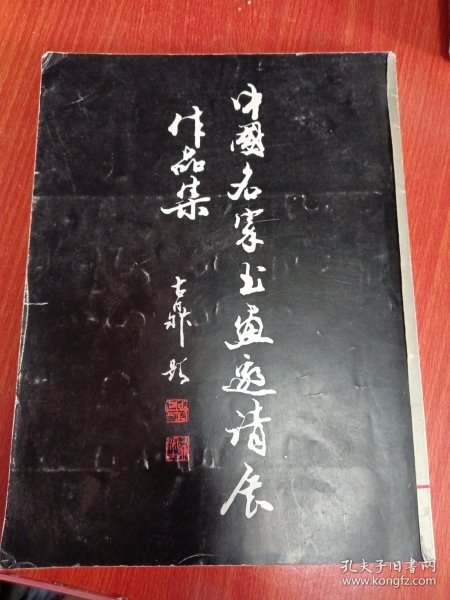 中國名家书畫邀请展
作品集
古鼎题
孔夫子旧书网
www.kongfz.com